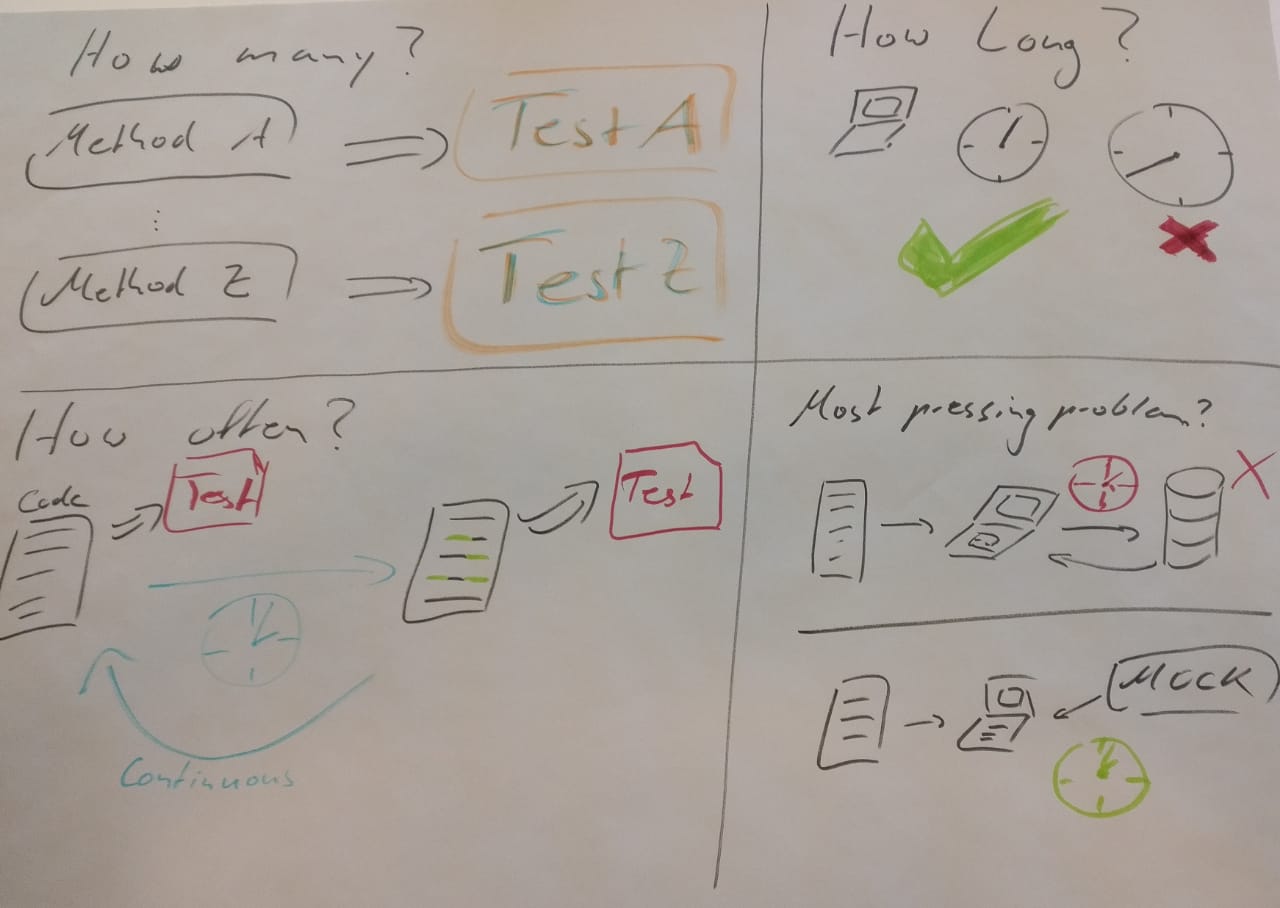 How many?
Method A
Test A
Method Z
Test Z
How Long?
How often?
Code
Test
Test
Continuous
Most pressing problem?
Mock